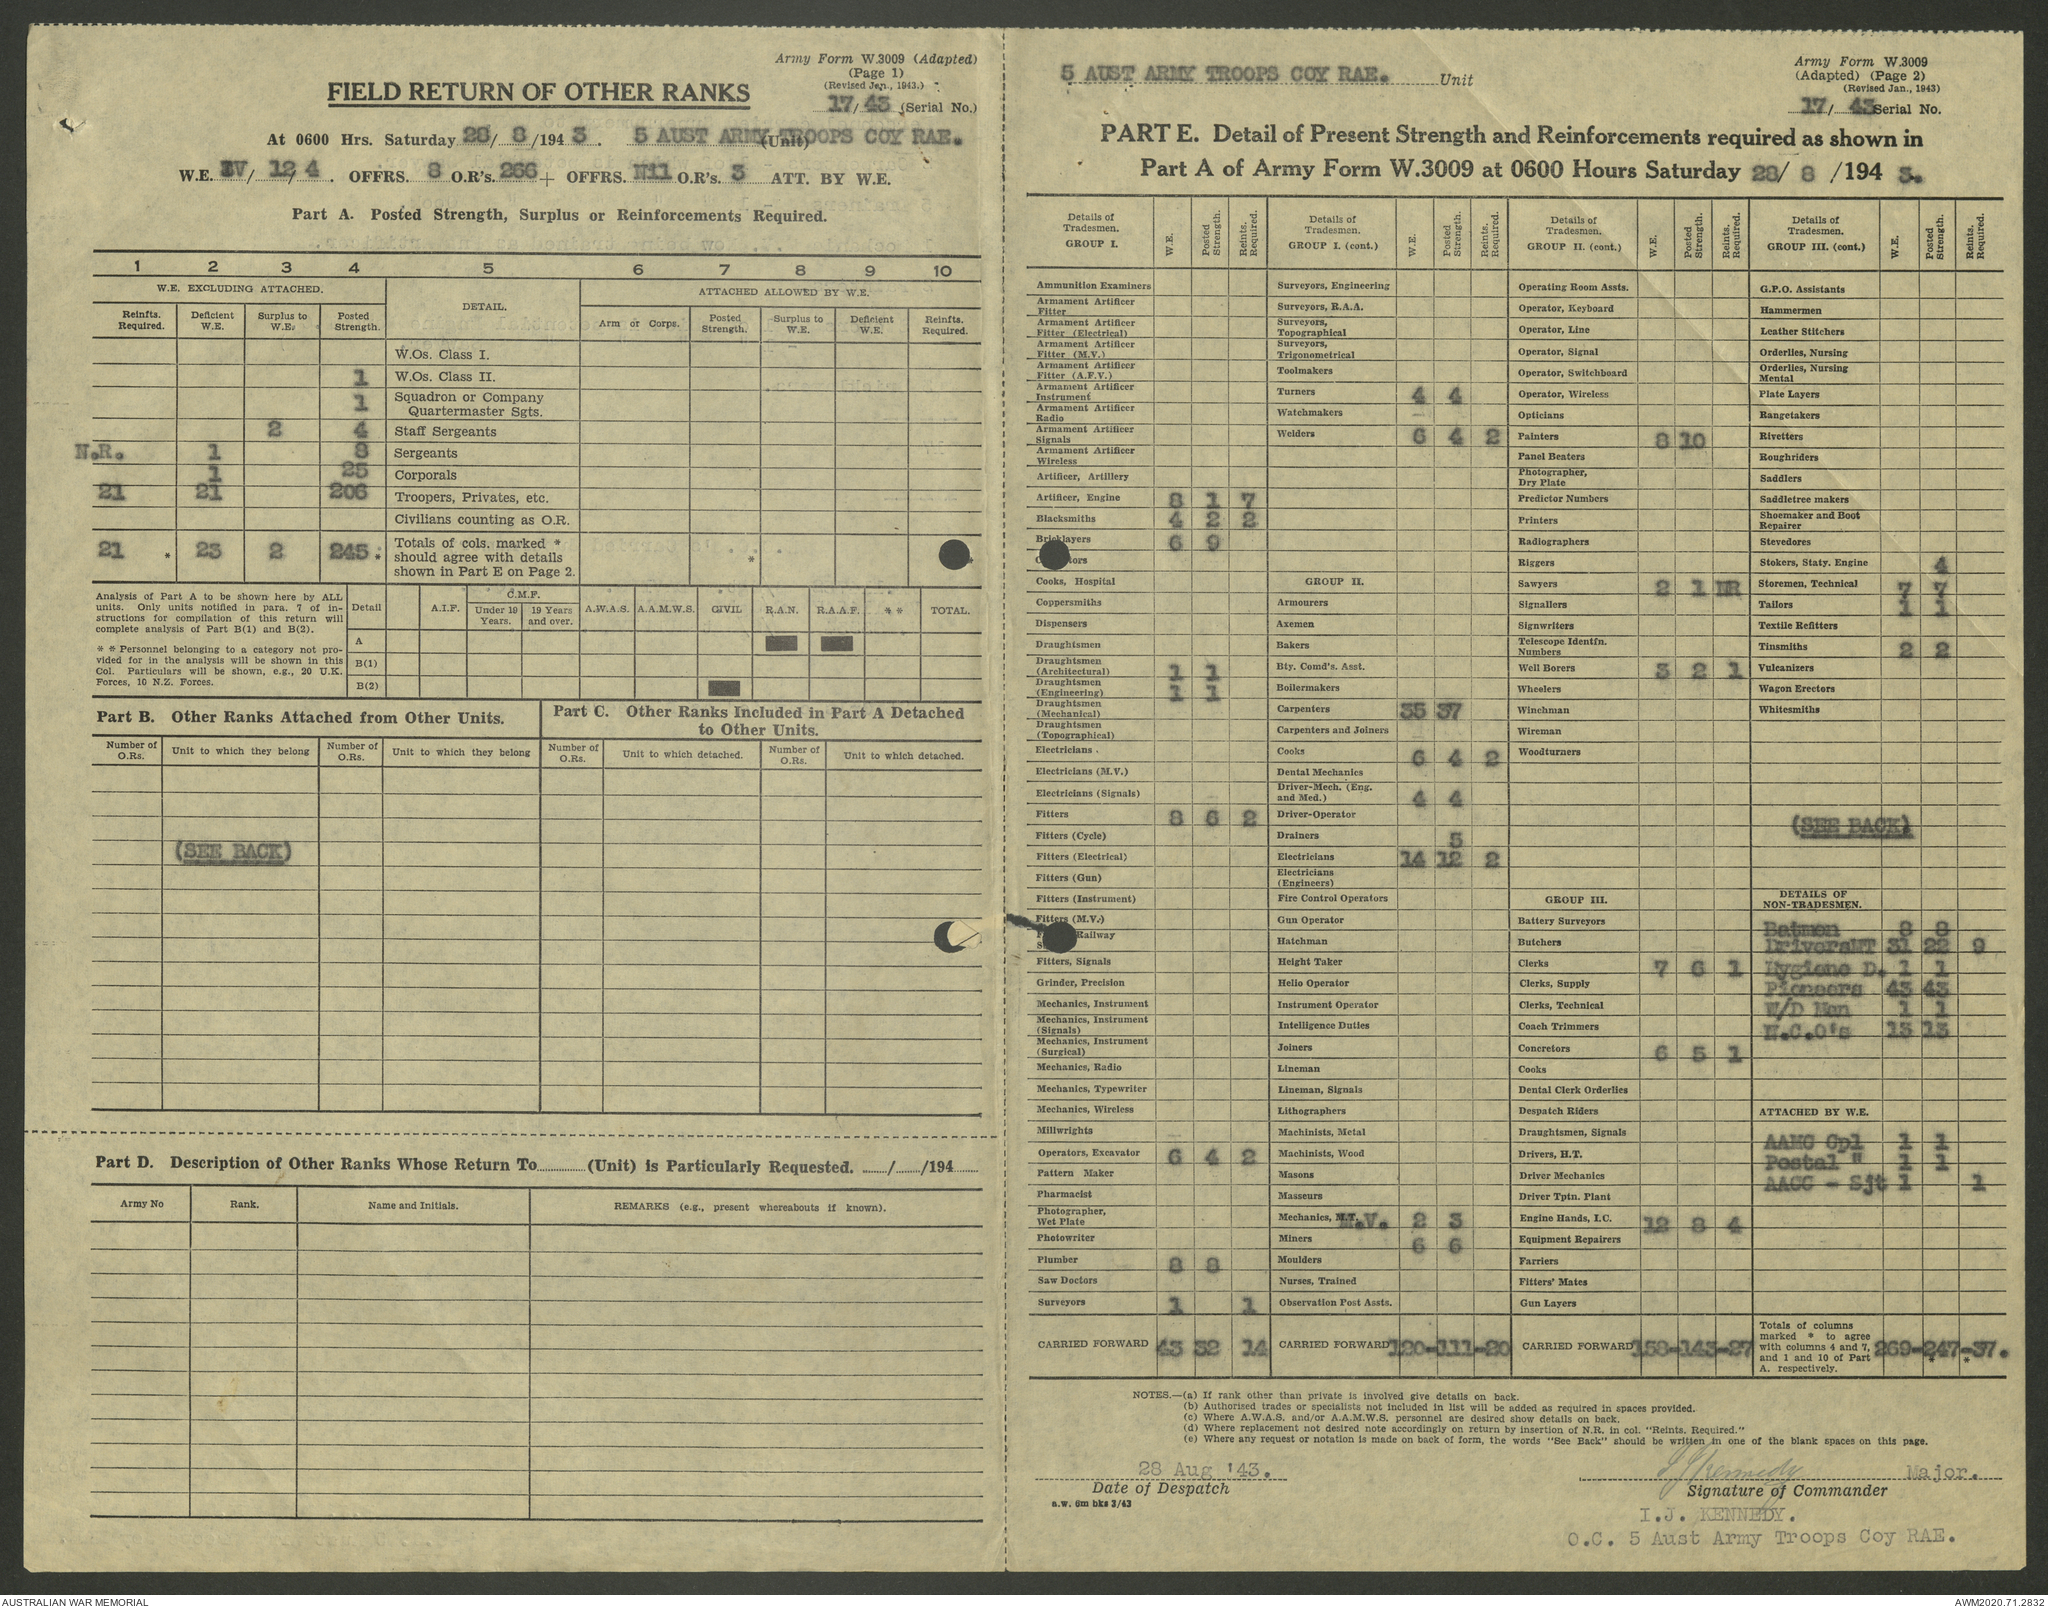 Army Form W.3009 (Adapted)
(Page 1)
(Revised Jan., 1943.)
FIELD RETURN OF OTHER RANKS
17/ 43 (Serial No.)
At 0600 Hrs. Saturday 28/ 8 /194 3 . 5 AUST ARMY TROOPS COY RAE. (Unit)
W.E. IV/ 12/ 4 . OFFRS. 8 O.R's. 266 + OFFRS. Nil O.R's. 3 ATT. BY W.E.
Part A. Posted Strength, Surplus or Reinforcements Required.
1 2 3 4 5 6 7 8 9 10
W.E. EXCLUDING ATTACHED. DETAIL. ATTACHED ALLOWED BY W.E.
Reinfts. Required. Deficient W.E. Surplus to W.E. Posted Strength. Arm or Corps. Posted Strength. Surplus to W.E. Deficient W.E. Reinfts. Required.
W.Os. Class I.
1 W.Os. Class II.
1 Squadron or Company Quartermaster Sgts.
2 4 Staff Sergeants
N.R. 1 8 Sergeants
1 25 Corporals
21 21 206 Troopers, Privates, etc.
Civilians counting as O.R.
21 * 23 2 245 * Totals of cols. marked * should agree with details shown in Part E on Page 2. *
Analysis of Part A to be shown here by ALL units. Only units notified in para. 7 of instructions for compilation of this return will complete analysis of Part B(1) and B(2).
* * Personnel belonging to a category not provided for in the analysis will be shown in this Col. Particulars will be shown, e.g., 20 U.K. Forces, 10 N.Z. Forces.
Detail A.I.F. C.M.F. Under 19 Years. 19 Years and over. A.W.A.S. A.A.M.W.S. CIVIL R.A.N. R.A.A.F. * * TOTAL.
A
B(1)
B(2)
Part B. Other Ranks Attached from Other Units.
Part C. Other Ranks Included in Part A Detached to Other Units.
Number of O.Rs. Unit to which they belong Number of O.Rs. Unit to which they belong Number of O.Rs. Unit to which detached. Number of O.Rs. Unit to which detached.
(SEE BACK)
Part D. Description of Other Ranks Whose Return To (Unit) is Particularly Requested. / /194
Army No Rank. Name and Initials. REMARKS (e.g., present whereabouts if known).
5 AUST ARMY TROOPS COY RAE. Unit
Army Form W.3009
(Adapted) (Page 2)
(Revised Jan., 1943)
17/ 43 Serial No.
PART E. Detail of Present Strength and Reinforcements required as shown in
Part A of Army Form W.3009 at 0600 Hours Saturday 28/ 8 /194 3.
Details of Tradesmen. GROUP I. W.E. Posted Strength. Reints. Required.
Ammunition Examiners
Armament Artificer Fitter
Armament Artificer Fitter (Electrical)
Armament Artificer Fitter (M.V.)
Armament Artificer Fitter (A.F.V.)
Armament Artificer Instrument
Armament Artificer Radio
Armament Artificer Signals
Armament Artificer Wireless
Artificer, Artillery
Artificer, Engine 8 1 7
Blacksmiths 4 2 2
Bricklayers 6 9
Cooks, Hospital
Coppersmiths
Dispensers
Draughtsmen
Draughtsmen (Architectural) 1 1
Draughtsmen (Engineering) 1 1
Draughtsmen (Mechanical)
Draughtsmen (Topographical)
Electricians
Electricians (M.V.)
Electricians (Signals)
Fitters 8 6 2
Fitters (Cycle)
Fitters (Electrical)
Fitters (Gun)
Fitters (Instrument)
Fitters (M.V.)
Railway
Fitters, Signals
Grinder, Precision
Mechanics, Instrument
Mechanics, Instrument (Signals)
Mechanics, Instrument (Surgical)
Mechanics, Radio
Mechanics, Typewriter
Mechanics, Wireless
Millwrights
Operators, Excavator 6 4 2
Pattern Maker
Pharmacist
Photographer, Wet Plate
Photowriter
Plumber 8 8
Saw Doctors
Surveyors 1 1
CARRIED FORWARD 43 32 14
Details of Tradesmen. GROUP I. (cont.) W.E. Posted Strength. Reints. Required.
Surveyors, Engineering
Surveyors, R.A.A.
Surveyors, Topographical
Surveyors, Trigonometrical
Toolmakers
Turners 4 4
Watchmakers
Welders 6 4 2
GROUP II.
Armourers
Axemen
Bakers
Bty. Comd's. Asst.
Boilermakers
Carpenters 35 37
Carpenters and Joiners
Cooks 6 4 2
Dental Mechanics
Driver-Mech. (Eng. and Med.) 4 4
Driver-Operator
Drainers 5
Electricians 14 12 2
Electricians (Engineers)
Fire Control Operators
Gun Operator
Hatchman
Height Taker
Helio Operator
Instrument Operator
Intelligence Duties
Joiners
Lineman
Lineman, Signals
Lithographers
Machinists, Metal
Machinists, Wood
Masons
Masseurs
Mechanics, M.T. M.V. 2 3
Miners 6 6
Moulders
Nurses, Trained
Observation Post Assts.
CARRIED FORWARD 120-111-20
Details of Tradesmen. GROUP II. (cont.) W.E. Posted Strength. Reints. Required.
Operating Room Assts.
Operator, Keyboard
Operator, Line
Operator, Signal
Operator, Switchboard
Operator, Wireless
Opticians
Painters 8 10
Panel Beaters
Photographer, Dry Plate
Predictor Numbers
Printers
Radiographers
Riggers
Sawyers 2 1 NR
Signallers
Signwriters
Telescope Identfn. Numbers
Well Borers 3 2 1
Wheelers
Winchman
Wireman
Woodturners
GROUP III.
Battery Surveyors
Butchers
Clerks 7 6 1
Clerks, Supply
Clerks, Technical
Coach Trimmers
Concretors 6 5 1
Cooks
Dental Clerk Orderlies
Despatch Riders
Draughtsmen, Signals
Drivers, H.T.
Driver Mechanics
Driver Tptn. Plant
Engine Hands, I.C. 12 8 4
Equipment Repairers
Farriers
Fitters' Mates
Gun Layers
CARRIED FORWARD 158-143-27
Details of Tradesmen. GROUP III. (cont.) W.E. Posted Strength. Reints. Required.
G.P.O. Assistants
Hammermen
Leather Stitchers
Orderlies, Nursing
Orderlies, Nursing Mental
Plate Layers
Rangetakers
Rivetters
Roughriders
Saddlers
Saddletree makers
Shoemaker and Boot Repairer
Stevedores
Stokers, Staty. Engine 4
Storemen, Technical 7 7
Tailors 1 1
Textile Refitters
Tinsmiths 2 2
Vulcanizers
Wagon Erectors
Whitesmiths
(SEE BACK)
DETAILS OF NON-TRADESMEN.
Batmen 8 8
DriversMT 31 22 9
Hygiene D. 1 1
Pioneers 43 43
W/D Men 1 1
N.C.O's 13 13
ATTACHED BY W.E.
AAMC Cpl 1 1
Postal " 1 1
AACC - Sjt 1 1
Totals of columns marked * to agree with columns 4 and 7, and 1 and 10 of Part A. respectively. 269-247-37.
* *
NOTES.—(a) If rank other than private is involved give details on back.
(b) Authorised trades or specialists not included in list will be added as required in spaces provided.
(c) Where A.W.A.S. and/or A.A.M.W.S. personnel are desired show details on back.
(d) Where replacement not desired note accordingly on return by insertion of N.R. in col. "Reints. Required."
(e) Where any request or notation is made on back of form, the words "See Back" should be written in one of the blank spaces on this page.
28 Aug '43.
Date of Despatch
a.w. 6m bks 3/43
I J Kennedy Major.
Signature of Commander
I.J. KENNEDY.
O.C. 5 Aust Army Troops Coy RAE.
AUSTRALIAN WAR MEMORIAL
AWM2020.71.2832